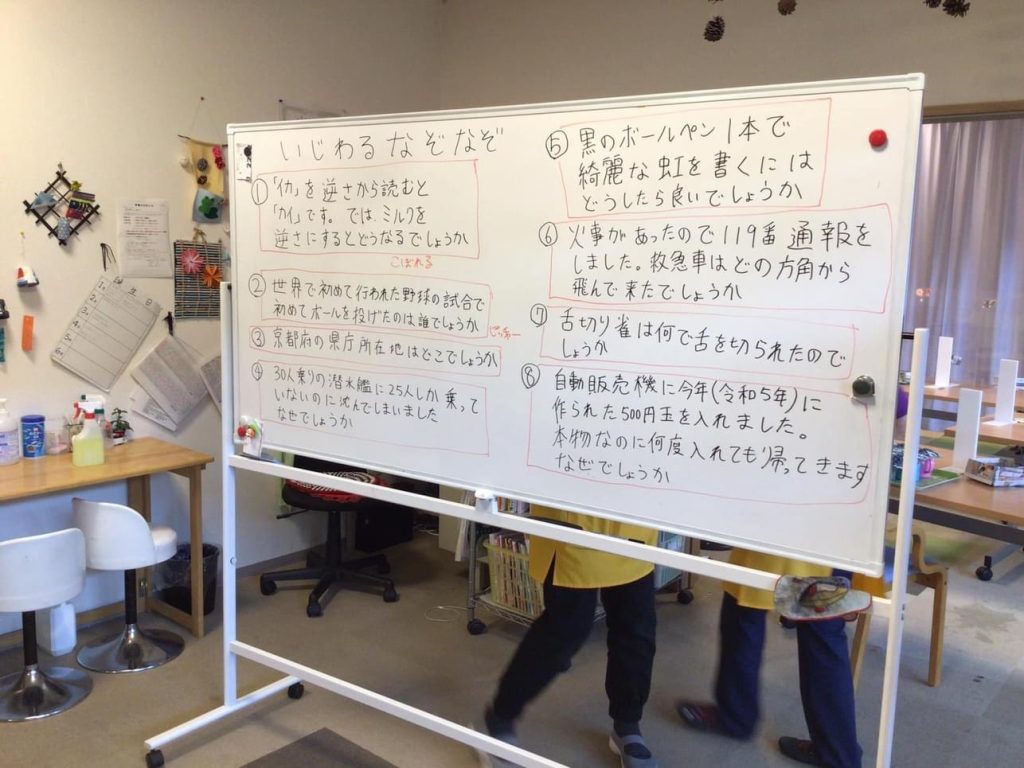 いじわるなぞなぞ
① 「イカ」を逆さから読むと
「カイ」です。では、ミルクを
逆さにするとどうなるでしょうか
こぼれる
② 世界で初めて行われた野球の試合で
初めてボールを投げたのは誰でしょうか
ピッチャー
③ 京都府の県庁所在地はどこでしょうか
④ 30人乗りの潜水艦に25人しか乗って
いないのに沈んでしまいました
なぜでしょうか
⑤ 黒のボールペン1本で
綺麗な虹を書くには
どうしたら良いでしょうか
⑥ 火事があったので119番通報を
しました。救急車はどの方角から
飛んで来たでしょうか
⑦ 舌切り雀は何で舌を切られたので
しょうか
⑧ 自動販売機に今年(令和5年)に
作られた500円玉を入れました。
本物なのに何度入れてもり帰ってきます
なぜでしょうか
誕生日
1.
2.
3.
4.
5.
6.